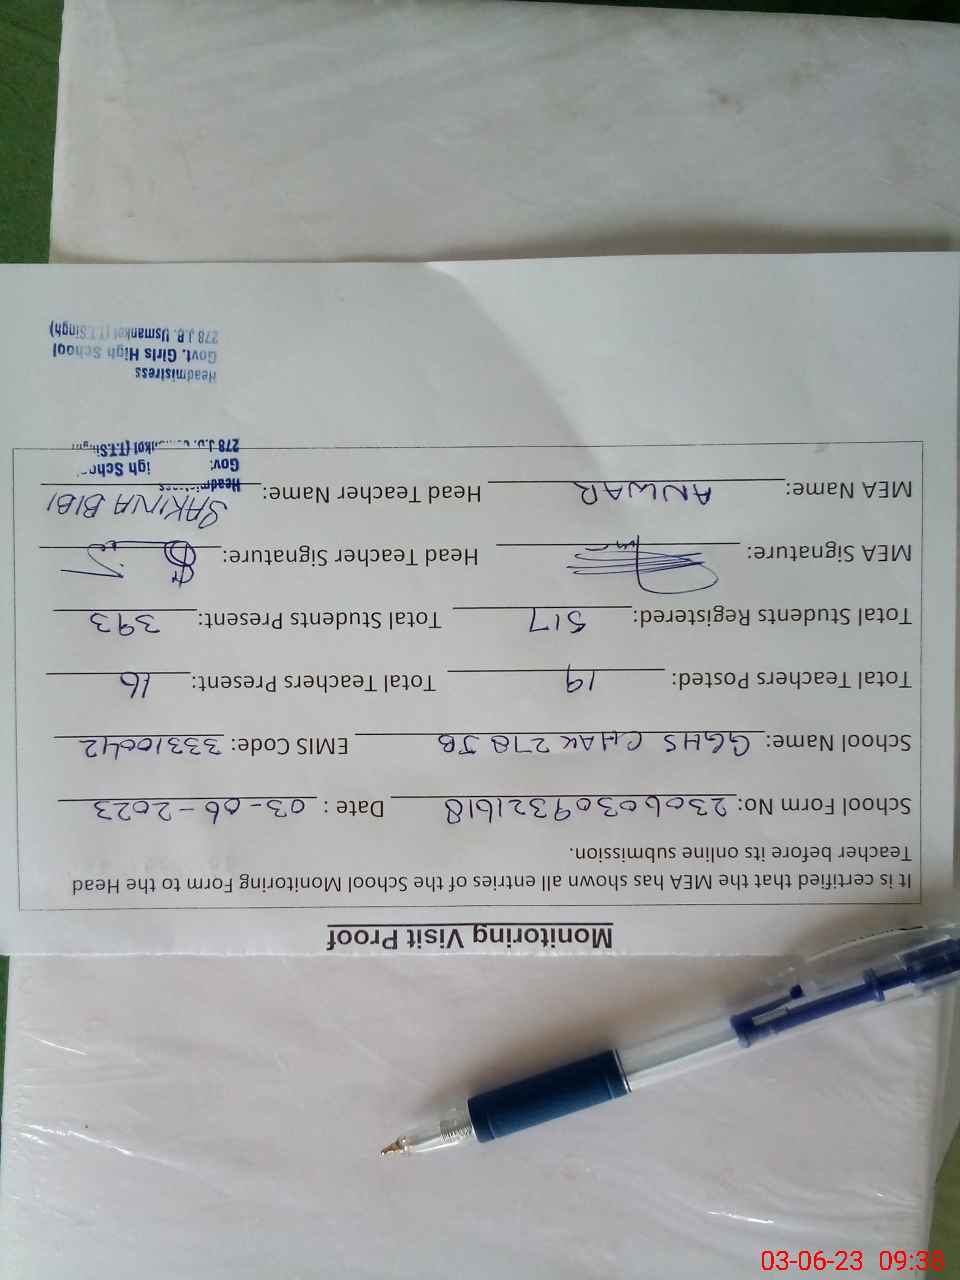 Monitoring Visit Proof
It is certified that the MEA has shown all entries of the School Monitoring Form to the Head
Teacher before its online submission.
School Form No: 23060309321618 Date : 03-06-2023
School Name: GGHS CHAK 278 JB EMIS Code: 33310042
Total Teachers Posted: 19 Total Teachers Present: 16
Total Students Registered: 517 Total Students Present: 393
MEA Signature: Head Teacher Signature:
MEA Name: ANWAR Head Teacher Name: SAKINA BIBI
Headmistress
Gov. igh Scho
278 J.B. kot (T.T.Singh
Headmistress
Govt. Girls High School
278 J.B. Usmankot (T.T.Singh)
03-06-23 09:38